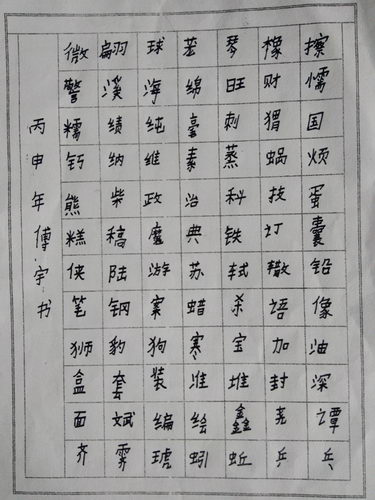 微翩球琴橡擦
警溪海绵旺财懦
糯绩纯毫刺猬国
钙纳维素蒸蜗烦
熊柴政治科技蛋
糕稿魔典铁钉囊
侠陆游苏轼辙铅
笔钢案蜡杀语像
狮豹狗寒宝加油
盒套装准堆封深
面斌编绘鑫谭
齐霁琥蚓蚯乒乓
丙申年傅宇书